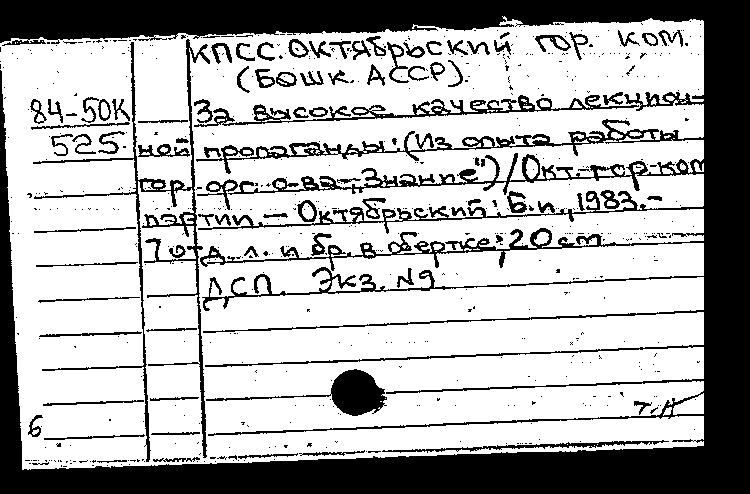 КПСС. Октябрьский гор. ком.
(Башк. АССР).
84-50К За высокое качество лекцион-
525 ной пропаганды: (Из опыта работы
гор. орг. о-ва „Знание") / Окт. гор. ком
партии. — Октябрьский: Б.и., 1983. —
7 отд. л. и бр. в обертке; 20 cm
ДСП. Экз. N9.
т.н
6